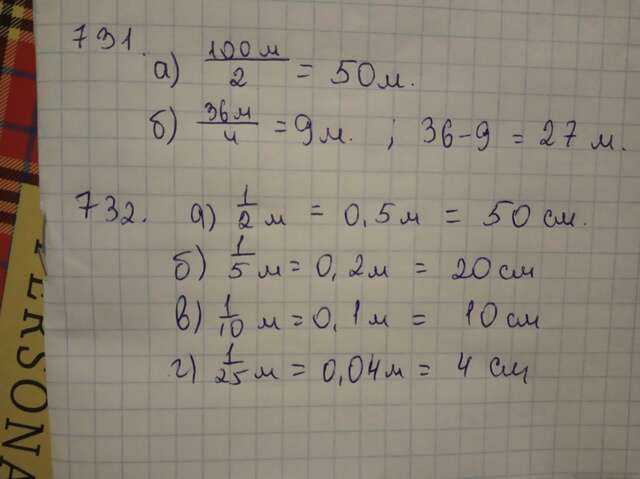 731. а) 100 м/2 = 50 м.
б) 36 м/4 = 9 м. ; 36-9 = 27 м.
732. а) 1/2 м = 0,5 м = 50 см.
б) 1/5 м = 0,2 м = 20 см
в) 1/10 м = 0,1 м = 10 см
г) 1/25 м = 0,04 м = 4 см
PERSONA